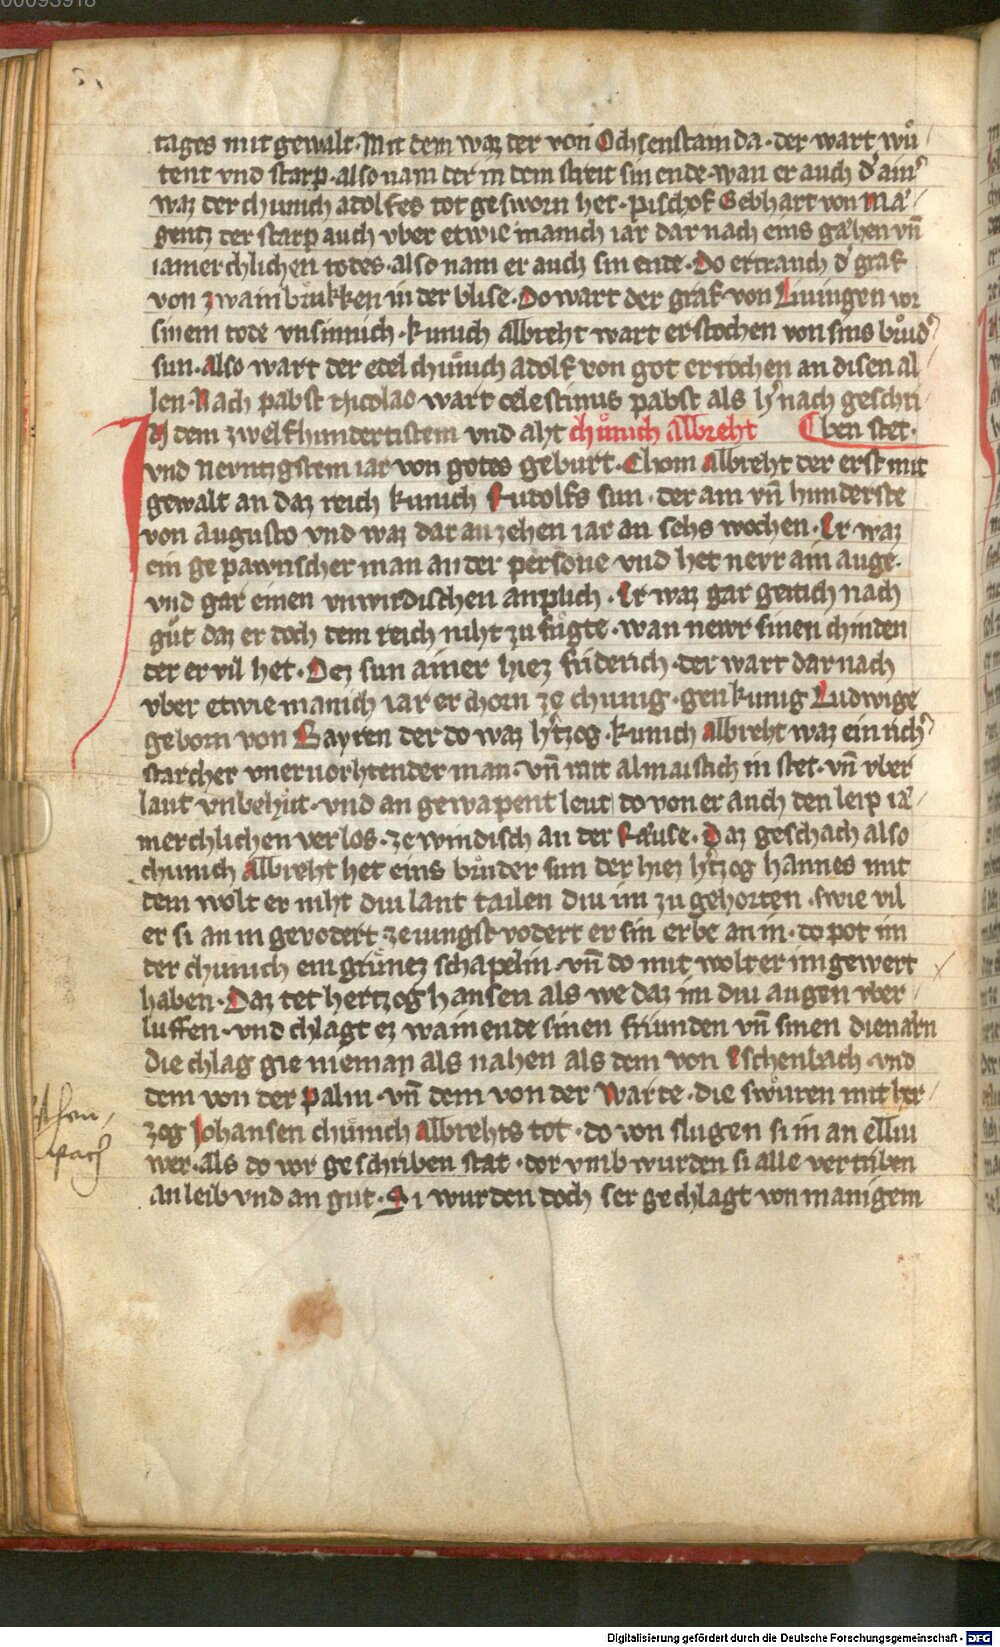 00093918
tages mit gewalt · Mit dem waz der von Ochsenstain da · der wart wů/
tent vnd starp · also nam der in dem streit sin ende · wan er auch d' ain'
waz der chunich adolfes tot gesworn het · pischof Gebhart von Ma/
gentz der starp auch vber etwie manich iar dar nach eins gæhen vñ
iamerchlichen todes · also nam er auch sin ende · Do ertranch d' graf
von zwainbrukken in der blise · Do wart der graf von Liningen vor
sinem tode vnsinnich · kunich Albreht wart erstochen von sins brůd'
sun · Also wart der edel chünich adolf von got errochen an disen al/
len · Nach pabst Nicolao wart celestinus pabst als h' nach geschri/
In dem zwelfhundertistem vnd aht chůnich Albreht ben stet ·
vnd Nevntzgstem iar von gotes geburt · Chom Albreht der erst mit
gewalt an daz reich kunich Rudolfs sun · der am vñ hunderste
von augusto vnd waz dar an zehen iar an sehs wochen · Er waz
ein gepawrischer man an der persone vnd het nevr ain auge ·
vnd gar einen vnwirdischen anplich · Er waz gar geitich nach
gůt daz er doch dem reich niht zu fůgte · wan newr sinen chinden
der er vil het · Dez sun ainer hiez friderich · der wart dar nach
vber etwie manich iar erchorn ze chunig · gen kunig Ludwige
geborn von Bayren der do waz h'tzog · kunich Albreht waz ein rich'
starcher vneruorhtender man · vñ mit almaistich in stet · vñ vber
lant vnbehůt · vnd an gewapent leut do von er auch den leip iæ/
merchlichen verlos · ze windisch an der Rause · Daz geschach also
chunich Albreht het eins brůder sun der hiez h'tzog hannes mit
dem wolt er niht diu lant tailen diu im zu gehorten · swie vil
er si an in gevodert · ze iungst vodert er sin erbe an in · do pot im
der chunich ein grünez schapelin · vñ do mit wolt er im gewert
haben · Daz tet hertzog hansen als we daz im diu augen vber/
luffen · vnd chlagt ez wainende sinen friunden vñ sinen dienærn
die chlag gie nieman als nahen als dem von Eschenbach · vnd
dem von der Palm · vñ dem von der Warte · die swůren mit her/
zog Johansen chünich Albrehts tot · do von slugen si in an elliu
wer · als do vor geschriben stat · dor vmb wurden si alle vertriben
an leib vnd an gut · Si wurden doch ser gechlagt von manigem
Digitalisierung gefördert durch die Deutsche Forschungsgemeinschaft - DFG